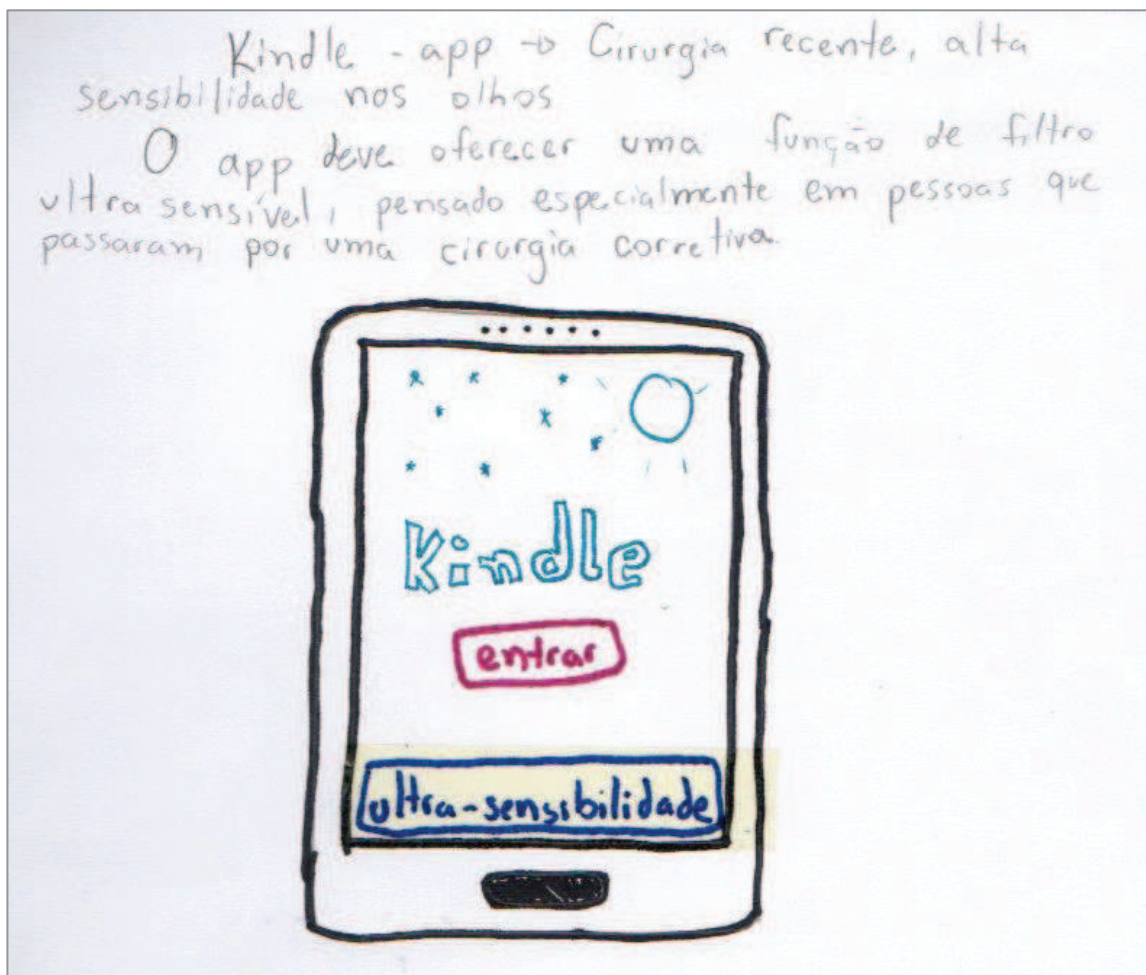 Kindle - app → Cirurgia recente, alta
sensibilidade nos olhos
O app deve oferecer uma função de filtro
ultra sensível, pensado especialmente em pessoas que
passaram por uma cirurgia corretiva.
Kindle
entrar
ultra-sensibilidade